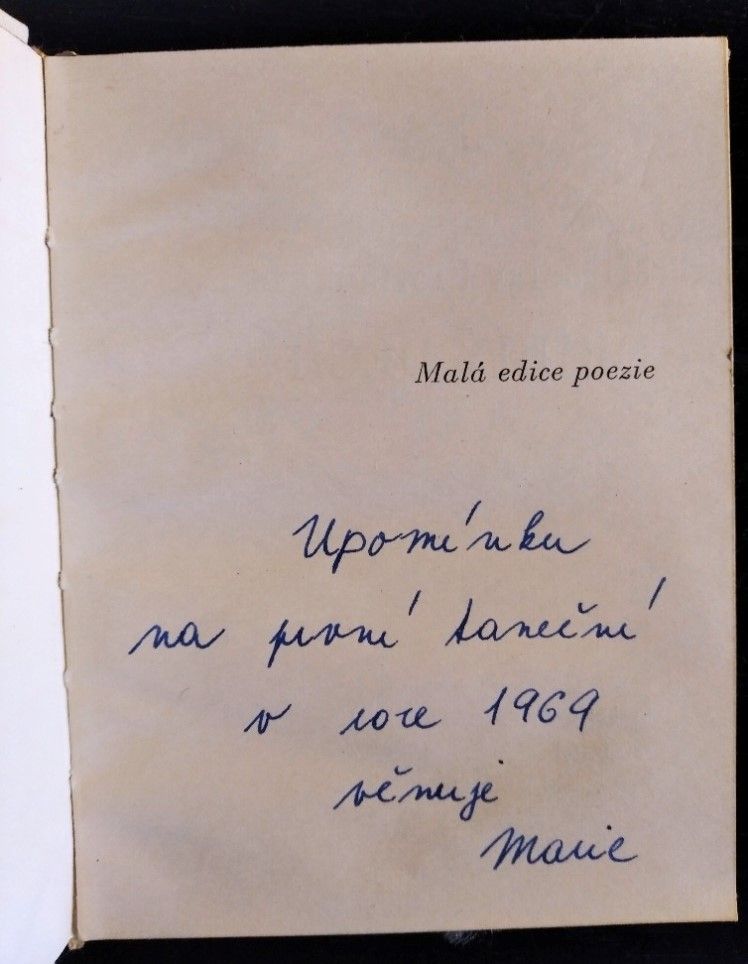 Malá edice poezie
Upomínku
na první taneční
v roce 1969
věnuje
Marie